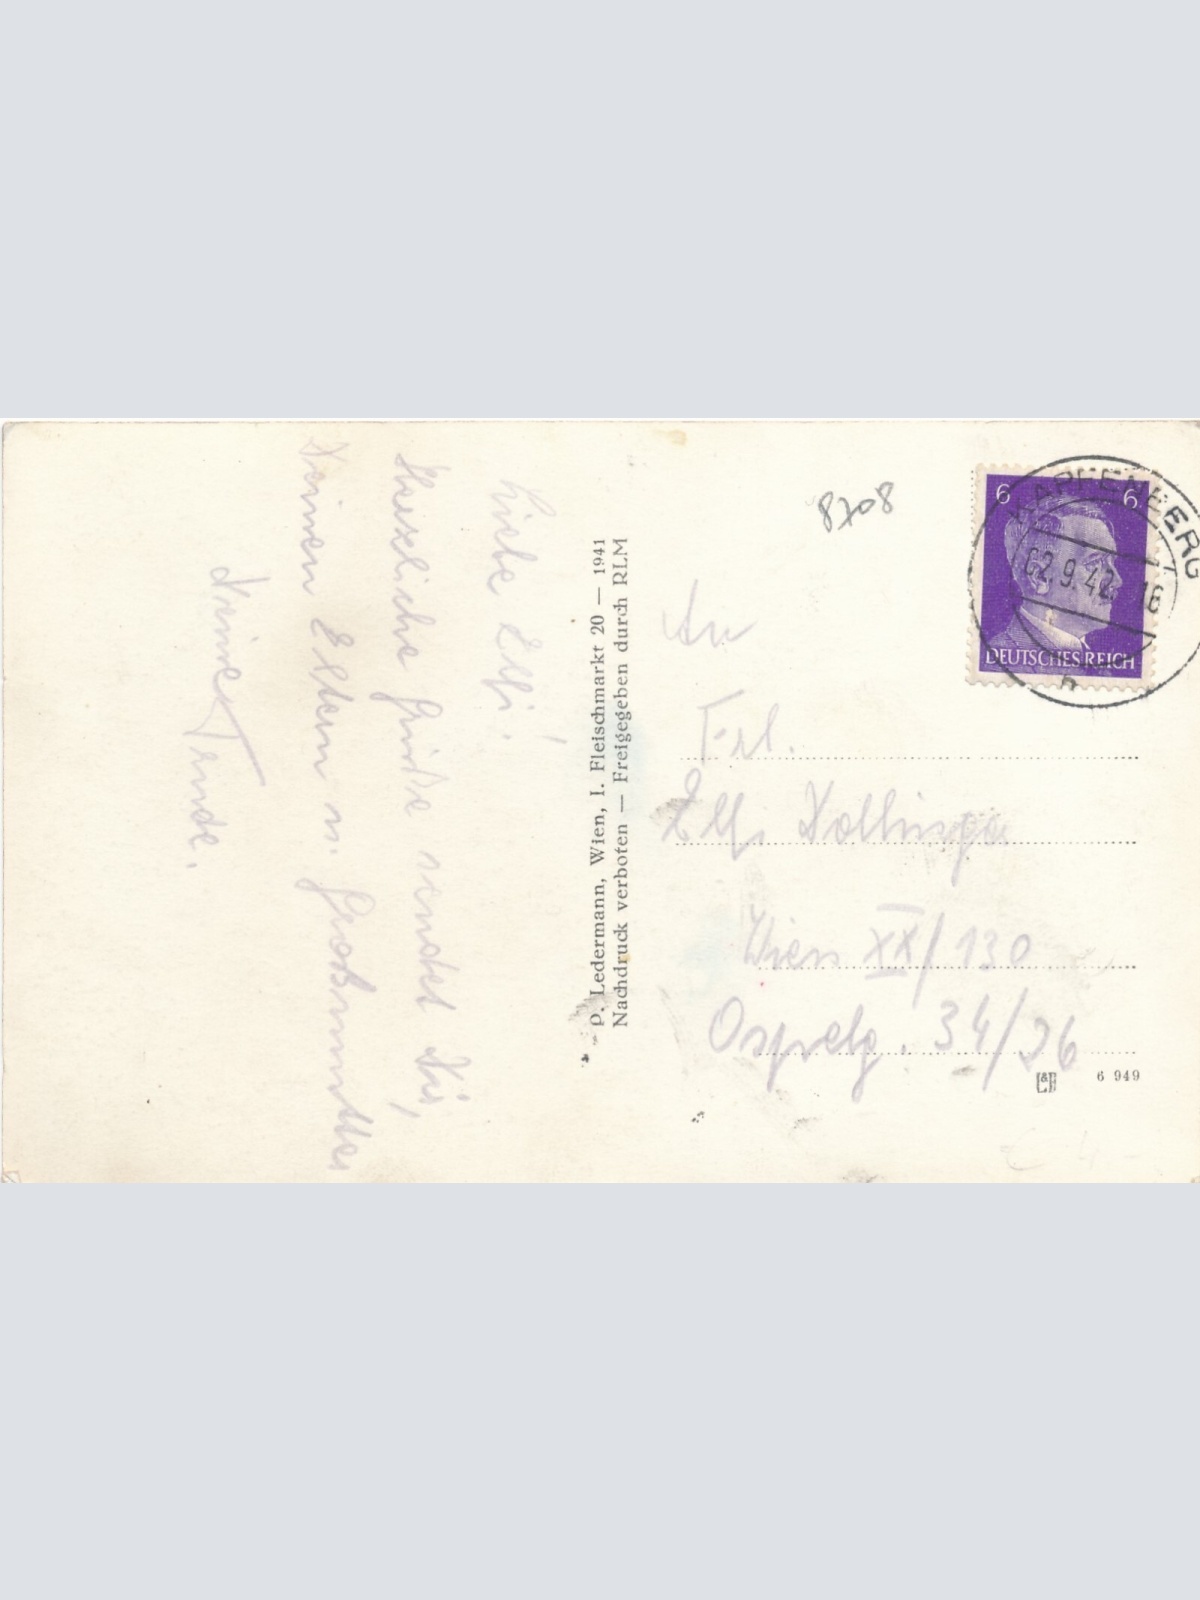 Liebe Elfi!
Herzliche Grüße sendet Dir,
Deinen Eltern u. Großmutter
Deine Trude.
P. Ledermann, Wien, I. Fleischmarkt 20 — 1941
Nachdruck verboten — Freigegeben durch RLM
8708
KAPFENBERG
2.9.42 16
6 6
DEUTSCHES REICH
An
Frl.
Elfi Dollinger
Wien XX/130
Ospelg. 34/26
6 949